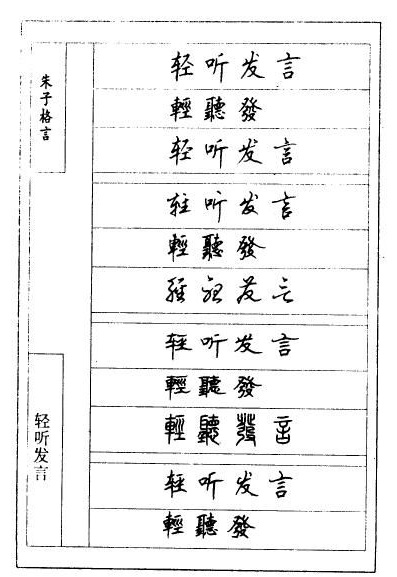 朱子格言
轻听发言
轻听发言
輕聽發
轻听发言
轻听发言
輕聽發
輕聽發言
轻听发言
輕聽發
輕聽發言
轻听发言
輕聽發